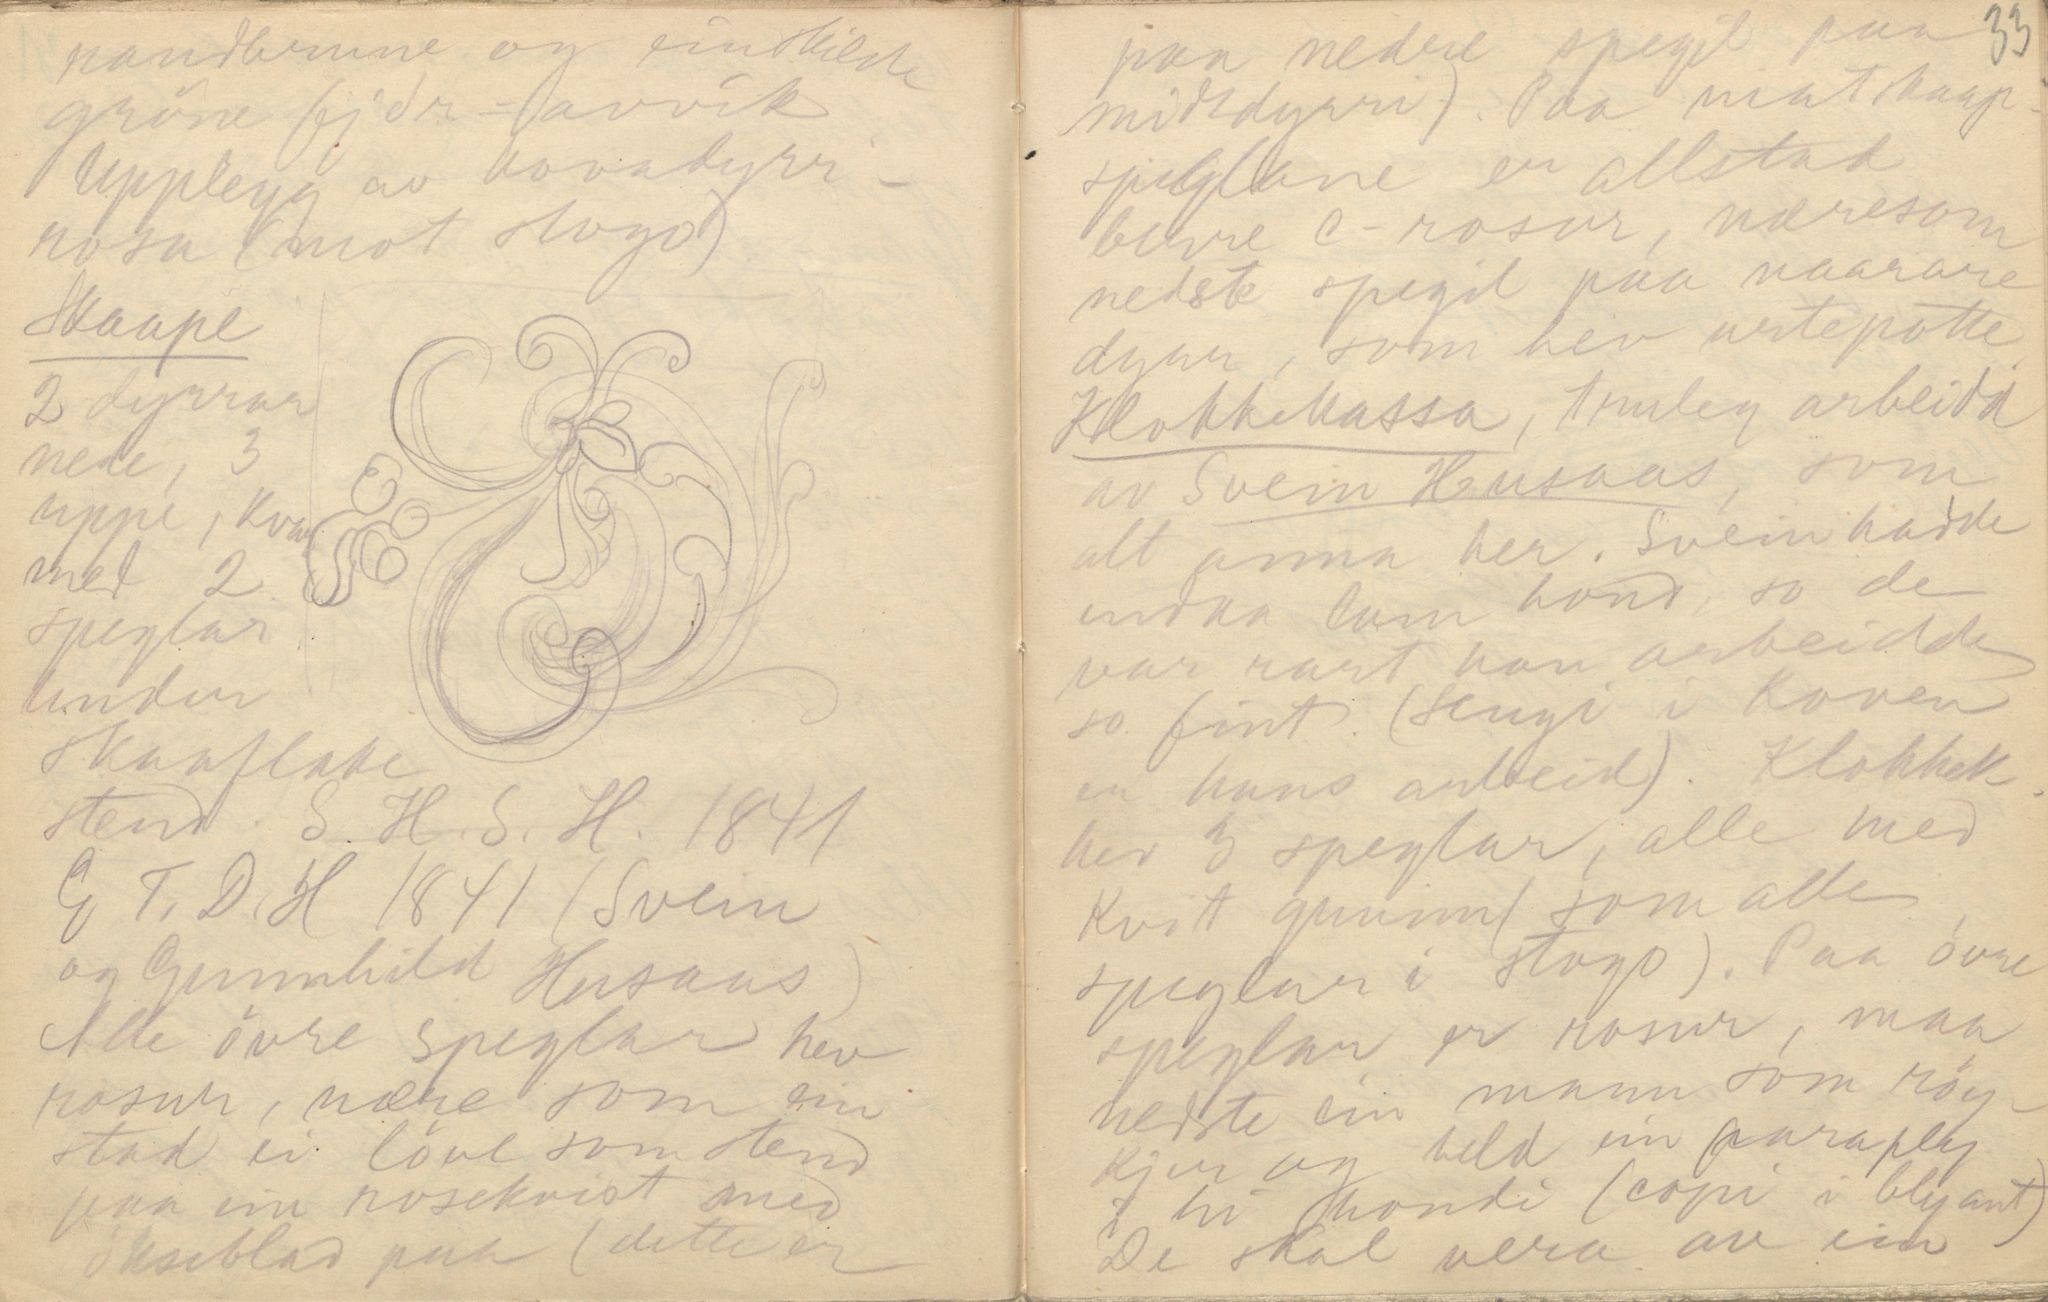 randbrune og einskilde
gröne fjör-avvik
Upplegg av hovudyrri-
rosa (mot stogo)
Skaape
2 dyrrar
nede, 3
uppe, kvar
med 2
speglar
undur
skaaflake
stend S. H. S. H. 1841
G T. D. H 1841 (Svein
og Gunnhild Husaas)
Alle övre speglar hev
rosur, nære som ein
stad ei löve som stend
paa ein rosekvist med
ökseblad paa (dette er
33
paa nedre spegil paa
midtdyrri). Paa matskaap-
speglane er allstad
berre C-rosur, næresom
nedste spegil paa vaarare
dyrr, som hev urtepotte.
Klokkekassa, truleg arbeidd
av Svein Husaas, som
alt anna her. Svein hadde
endaa lam hond, so de
var rart han arbeidde
so fint. (Sengi i Koven
er hans arbeid). Klokkek.
hev 3 speglar, alle med
kvit grunn (som alle
speglar i stogo). Paa övre
speglar er rosur, maa
nedste ein mann som röy-
kjer og held ein paraply
i hi hondi (copi i blyant)
De skal vera av ein